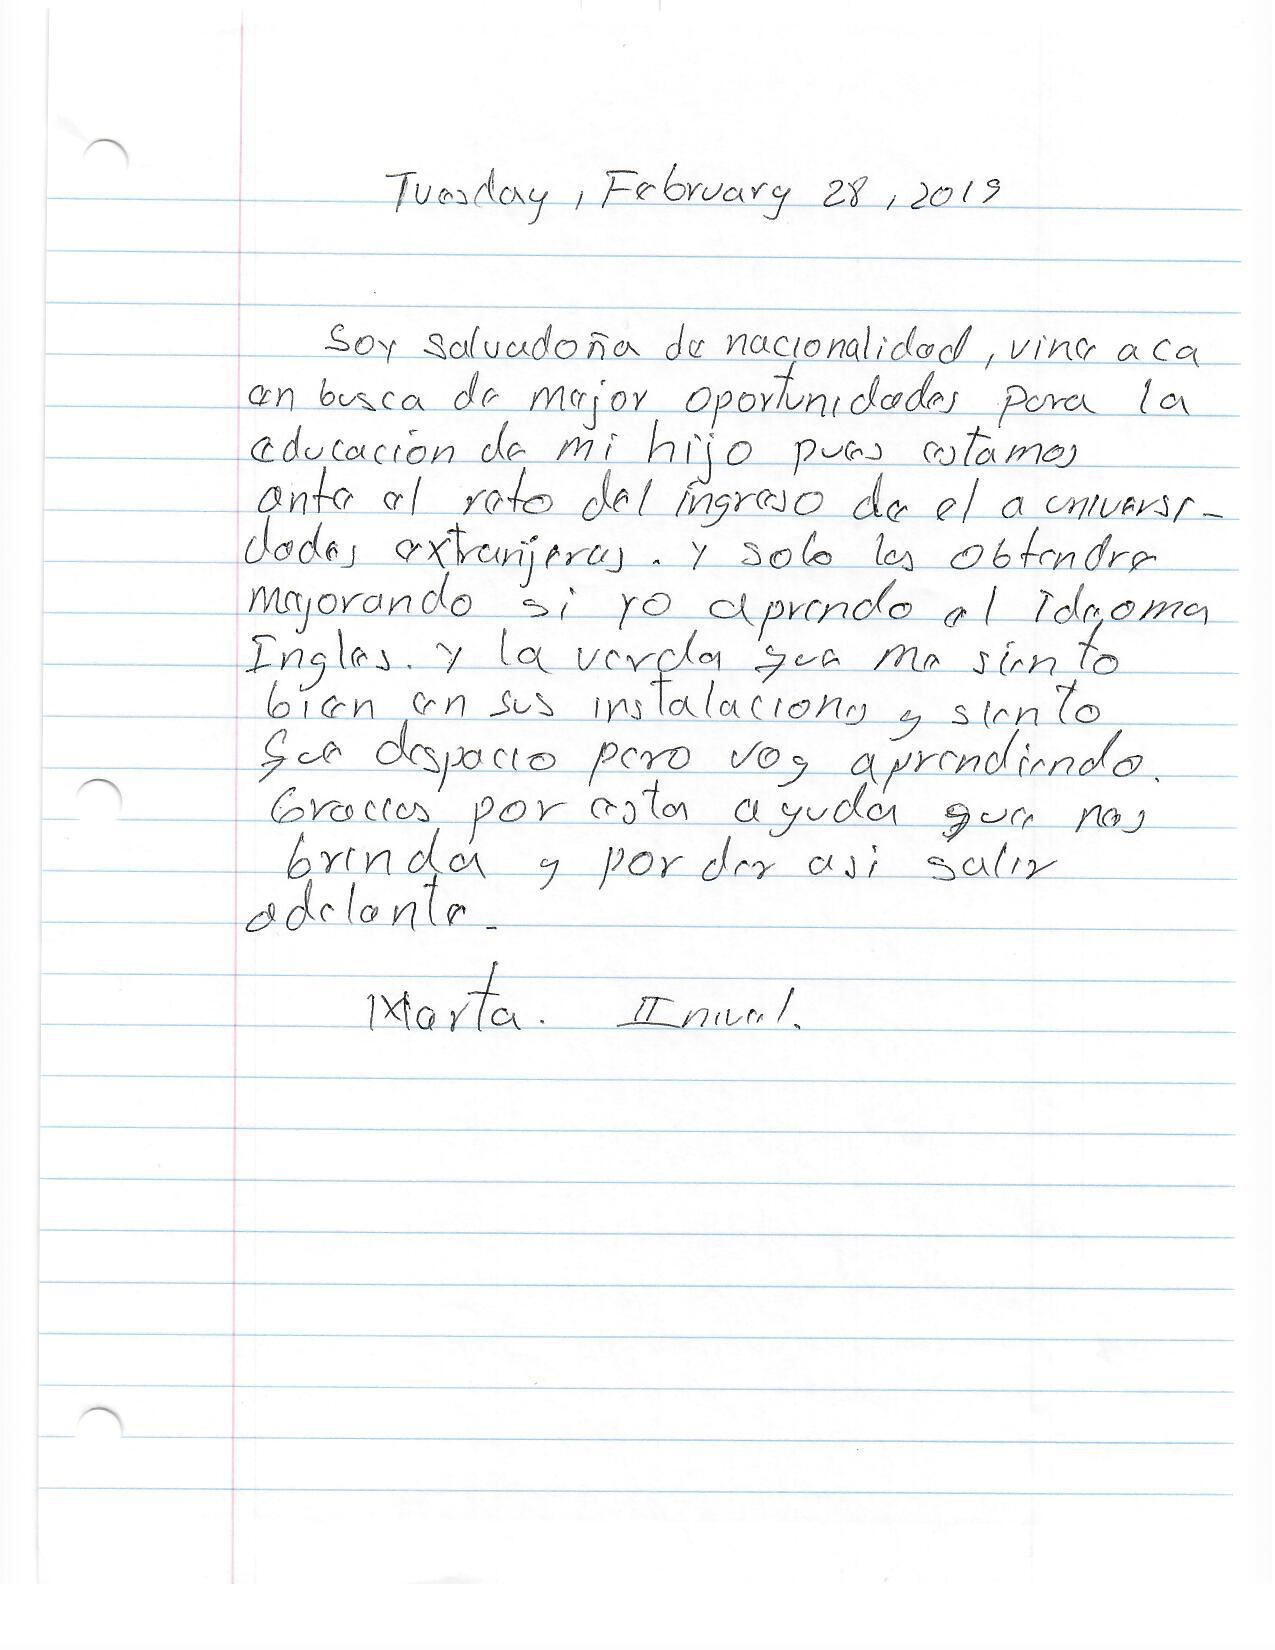 Tuesday, February 28, 2019
Soy salvadoña de nacionalidad, vine aca
en busca de mejor oportunidades para la
educación de mi hijo pues estamos
ante el reto del ingreso de el a universi-
dades extranjeras. y solo las obtendre
mejorando si yo aprendo el
Ingles. y la verda que me siento
bien en sus instalaciones y siento
que despacio pero voy aprendiendo.
Gracias por esta ayuda que nos
brinda y por der asi salir
adelante.
Marta. II nivel.